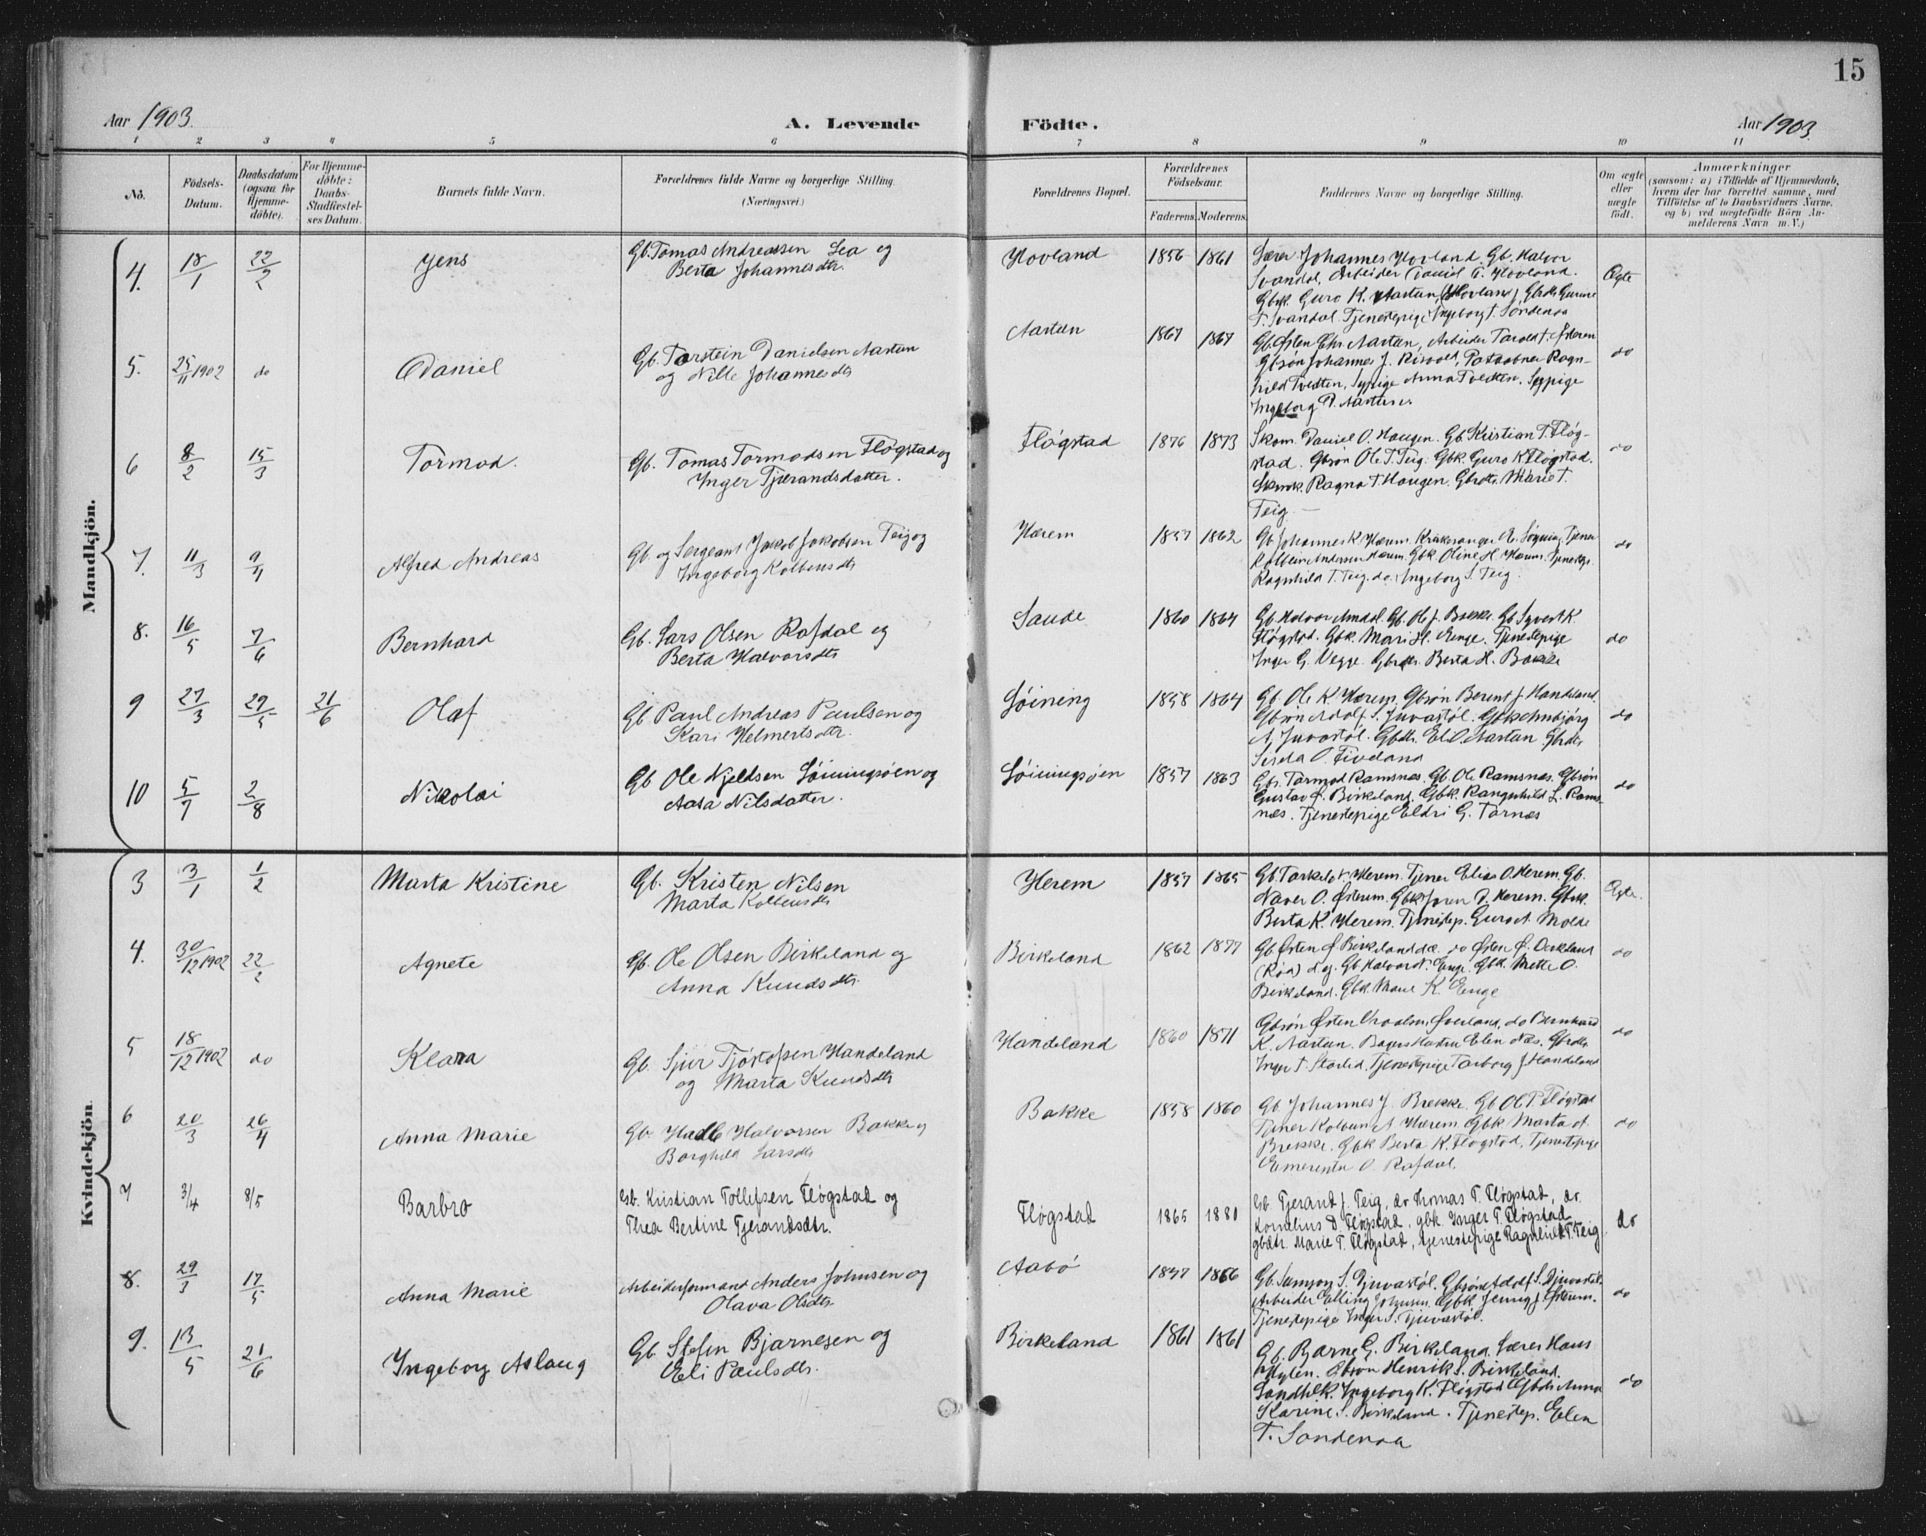 15
Aar 1903.
A. Levende
Födte.
Aar 1903.
1 2 3 4 5 6 7 8 9 10 11
No.
Födsels-Datum.
Daabsdatum (ogsaa for Hjemme-döbte).
For Hjemme-döbte: Daabs-Stadfæstelses Datum.
Barnets fulde Navn.
Forældrenes fulde Navne og borgerlige Stilling. (Næringsvei.)
Forældrenes Bopæl.
Forældrenes Födselsaar.
Faderens. Moderens.
Faddernes Navne og borgerlige Stilling.
Om ægte eller uægte födt.
Anmærkninger
(saasom: a) i Tilfælde af Hjemmedaab, hvem der har forrettet samme, med Tilföielse af to Daabsvidners Navne, og b) ved uægtefödte Börn Anmelderens Navn m. V.)
Mandkjön.
4. 18/1 22/2 Jens Gb. Tomas Andreassen Lea og
Berta Johannesdtr. Hovland 1856 1861 Lærer Johannes Hovland. Gb. Halvor
Svandal, Arbeider Daniel T. Hovland.
Gbk. Guro K. Aartun (Hovland), Gbrdtr. Gunne
T. Svandal. Tjenestepige Ingeborg T. Sondenaa Ægte
5. 25/11 1902 do Daniel Gb. Torstein Danielsen Aartun
og Nille Johannesdtr Aartun 1867 1867 Gb. Østen Chr. Aartun, Arbeider Tarald T. Østerem
Gbsøn Johannes J. Risvold,
Ragnhild Tvedten, Sypige Anna Tvedten. Sypige
Ingeborg Aartun do
6 8/2 15/3 Tormod. Gb. Tomas Tormodsen Fløgstad og
Inger Tjærandsdatter. Fløgstad 1876 1873 Skom. Daniel O. Haugen. Gb. Kristian T. Fløg-
stad. Gbsøn Ole T. Teig. Gbk. Guro K Fløgstad.
Ragna T Haugen. Gbrdtr. Marie T.
Teig. — do
7. 11/3 9/4 Alfred Andreas Gb. og Sergeant Jakob Jakobsen Teig og
Ingeborg Kolbensdtr Hærem 1857 1862 Gb. Johannes K Hærem. Tjener
Kolbein Andersen Hærem. Gbk. Oline H. Hærem.
Ragnhild T. Teig. do. Ingeborg S. Teig. do
8. 16/5 7/6 Bernhard Gb. Lars Olsen Rafdal og
Berta Halvorsdtr Saude 1860 1864 Gb. Halvor Amdal. Gb. Ole J. Bakke. Gb Syvert K
Fløgstad. Gbk. Mari H. Enge. Tjenestepige
Inger G. Vegge. Gbrdtr. Berta H. Bakke do
9 27/3 29/5 21/6 Olaf Gb Paul Andreas Paulsen og
Kari Helmertsdtr. Løining 1858 1864 Gb. Ole K. Hærem. Gbsøn Berent J. Handeland.
Gbsøn Adolf S. Juvastøl.
A. Juvastøl. Gbdtr. Eli O. Aartun. Gbrdtr
O. Tiveland do
10 5/7 2/8 Nikolai Gb Ole Njeldsen Løiningsøen og
Aasa Nilsdatter. Løiningsøen 1857 1863 Gb. Tormod Ramsnæs. Gb. Ole Ramsnæs. Gbsøn
Gustav Ø. Birkeland. Gbk. Rangnhild L. Rams-
næs. Tjenestepige Eldri G. Tornæs do
Kvindekjön.
3 3/1 1/2 Marta Kristine Gb. Kristen Nilsen
Marta Kolbensdtr Herem 1857 1865 Gb. Tarkel Herem. Tjener Elias O. Herem. Gb.
Naver O. Østerem. Gbk. Joren D. Herem. Gbk.
Berta K. Herem. Tjenestep. Guro A. Molde Ægte.
4. 30/12 1902 22/2 Agnete Gb. Ole Olsen Birkeland og
Anna Knudsdtr. Birkeland 1862 1877 Gb. Østen Ø. Birkeland do Østen Ø. Orekland
(Røa) d. y. Gb Halvor N. Enge. Gbk. Mette O.
Birkeland. Gbk. Marie K. Enge do
5 18/12 1902 do Klara Gb. Sjur Tjøstofsen Handeland
og Marta Knudsdtr Handeland 1860 1871 Gbsøn Østen Øverland, do Bernhard
K. Aartun. Elen Næs. Gbrdtr
Inger T. Tjenestepige Tarborg J. Handeland do
6 20/3 26/4 Anna Marie Gb. Hadle Halvorsen Bakke og
Borghild Larsdtr Bakke 1858 1860 Gb. Johannes J. Brekke. Gb. Ole P. Fløgstad
Tjener Kolben A Hærem. Gbk Marta A
Brekke. Gbk Berta K. Fløgstad. Tjenestepige
Emerentse O. Rafdal. do
7 3/4 8/5 Barbro Gb. Kristian Tollefsen Fløgstad og
Thea Bertine Tjerandsdtr. Fløgstad 1865 1881 Gb. Tjerand J. Teig, do Thomas T. Fløgstad, do
Kornelius D. Fløgstad, gbk. Inger T. Fløgstad
gbdtr. Marie T. Fløgstad, tjenestepige Ragnhild T. Teig do
8. 29/3 17/5 Anna Marie Arbeiderformand Anders Johnsen og
Olava Olsdtr. Aabø 1857 1866 Gb. Samson S. Djuvastøl. Gbsøn Adolf S. Djuvastøl.
Arbeider Elling Johnsen. Gbk Jenny J Østerem.
Tjenestepige Inger S. Djuvastøl. do
9. 13/5 21/6 Ingeborg Aslaug Gb. Stefen Bjarnesen og
Eli Paulsdtr. Birkeland 1861 1861 Gb. Barne G. Birkeland. Lærer Hans
Gbsøn Henrik S. Birkeland.
Ingeborg K. Fløgstad Gbdtr Anna
Karine S. Birkeland. Tjenestep. Elen
T. Sondenaa do